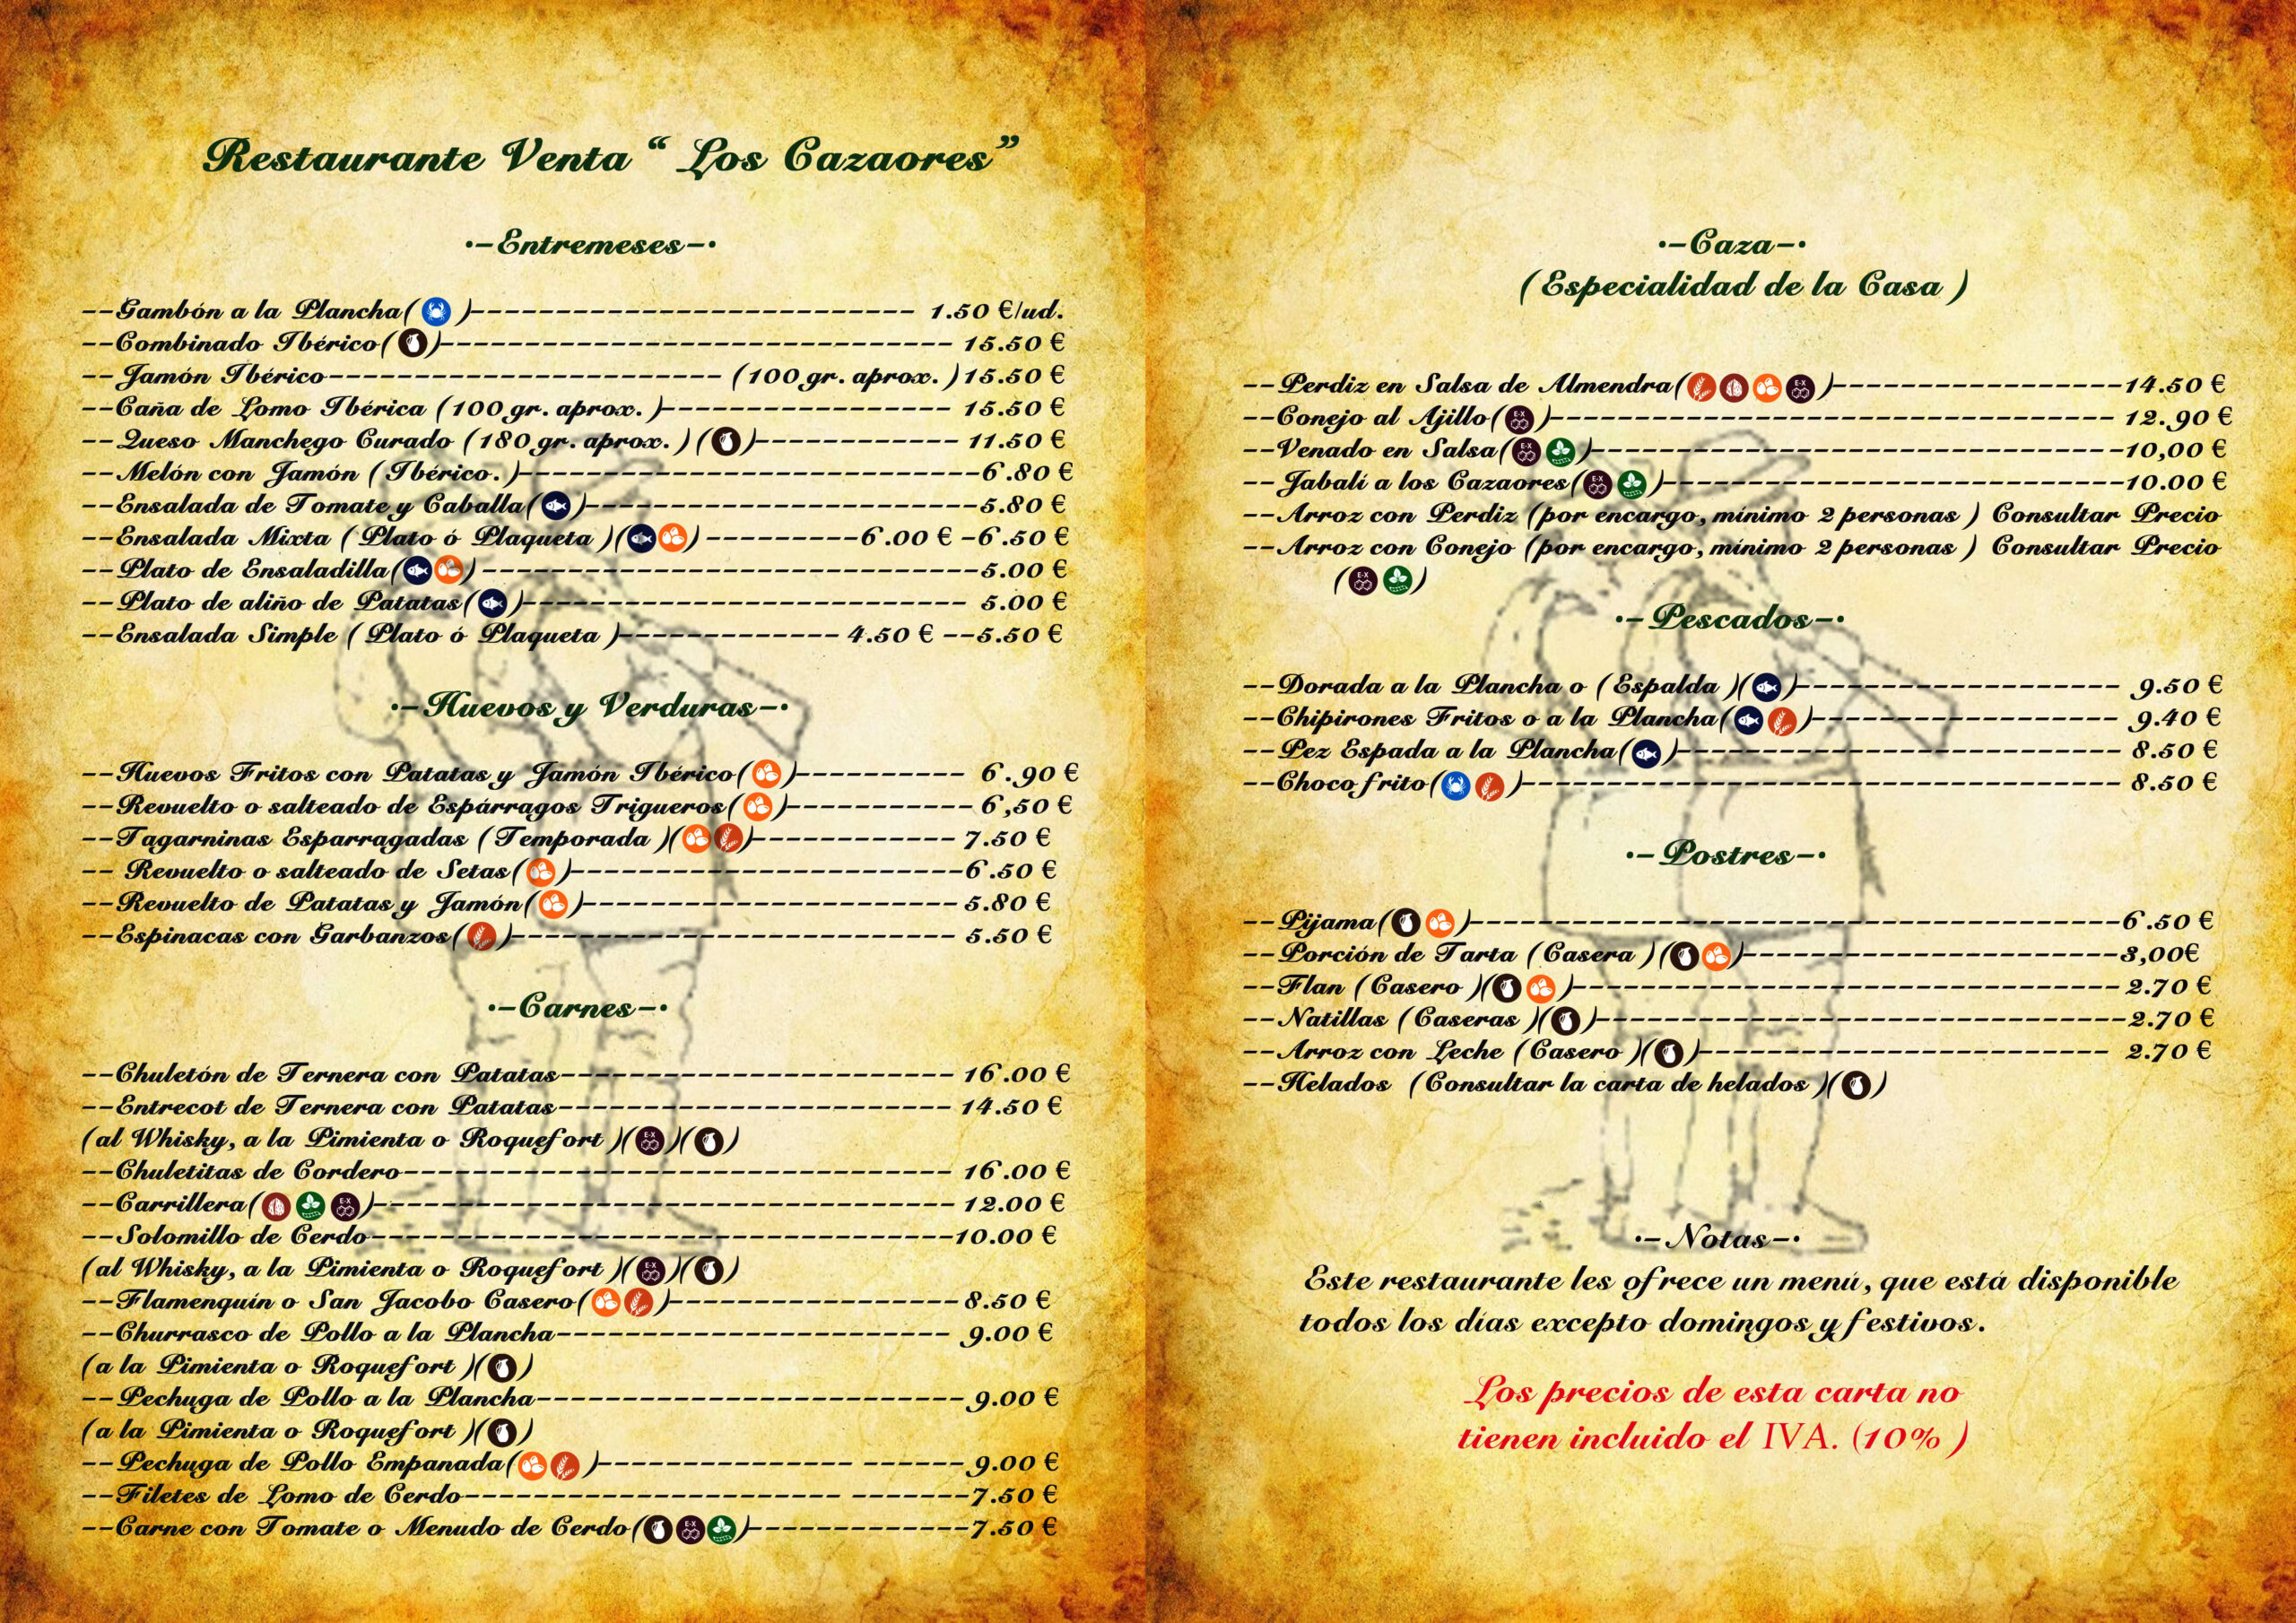 Restaurante Venta “ Los Cazaores”
·-Entremeses-·
--Gambón a la Plancha( )-------------------------- 1.50 €/ud.
--Combinado Ibérico( )------------------------------ 15.50 €
-- Jamón Ibérico----------------------- (100 gr. aprox. ) 15.50 €
--Caña de Lomo Ibérica (100 gr. aprox. )----------------- 15.50 €
--Queso Manchego Curado (180 gr. aprox. ) ( )------------ 11.50 €
--Melón con Jamón ( Ibérico. )---------------------------6.80 €
--Ensalada de Tomate y Caballa( )-----------------------5.80 €
--Ensalada Mixta ( Plato ó Plaqueta )( ) ---------6.00 € -6.50 €
-- Plato de Ensaladilla( ) -----------------------------5.00 €
-- Plato de aliño de Patatas( )-------------------------- 5.00 €
--Ensalada Simple ( Plato ó Plaqueta )------------- 4.50 € --5.50 €
·-Huevos y Verduras-·
--Huevos Fritos con Patatas y Jamón Ibérico( )---------- 6.90 €
--Revuelto o salteado de Espárragos Trigueros( )-----------6,50 €
--Tagarninas Esparragadas ( Temporada )( )------------ 7.50 €
-- Revuelto o salteado de Setas( )-----------------------6.50 €
--Revuelto de Patatas y Jamón( )----------------------5.80 €
--Espinacas con Garbanzos( )-------------------------- 5.50 €
·-Carnes-·
--Chuletón de Ternera con Patatas----------------------- 16.00 €
--Entrecot de Ternera con Patatas----------------------- 14.50 €
(al Whisky, a la Pimienta o Roquefort )(E-X)( )
--Chuletitas de Cordero-------------------------------- 16.00 €
--Carrillera( E-X )---------------------------------- 12.00 €
--Solomillo de Cerdo----------------------------------10.00 €
(al Whisky, a la Pimienta o Roquefort )(E-X)( )
--Flamenquín o San Jacobo Casero( )-----------------8.50 €
--Churrasco de Pollo a la Plancha----------------------- 9.00 €
(a la Pimienta o Roquefort )( )
-- Pechuga de Pollo a la Plancha-------------------------9.00 €
(a la Pimienta o Roquefort )( )
-- Pechuga de Pollo Empanada( )--------------- ------9.00 €
--Filetes de Lomo de Cerdo---------------------- -------7.50 €
--Carne con Tomate o Menudo de Cerdo( E-X )-------------7.50 €
·-Caza-·
( Especialidad de la Casa )
-- Perdiz en Salsa de Almendra( E-X )-----------------14.50 €
--Conejo al Ajillo(E-X)--------------------------------- 12.90 €
--Venado en Salsa(E-X )-------------------------------10,00 €
-- Jabalí a los Cazaores(E-X )---------------------------10.00 €
--Arroz con Perdiz (por encargo, mínimo 2 personas ) Consultar Precio
--Arroz con Conejo (por encargo, mínimo 2 personas ) Consultar Precio
(E-X )
·-Pescados-·
--Dorada a la Plancha o ( Espalda )( )------------------- 9.50 €
--Chipirones Fritos o a la Plancha( )------------------ 9.40 €
-- Pez Espada a la Plancha( )-------------------------- 8.50 €
--Choco frito( )----------------------------------- 8.50 €
·-Postres-·
-- Pijama( )--------------------------------------6.50 €
--Porción de Tarta (Casera ) ( )----------------------3,00€
--Flan (Casero )( )--------------------------------2.70 €
--Natillas (Caseras )( )-------------------------------2.70 €
--Arroz con Leche (Casero )( )------------------------ 2.70 €
--Helados (Consultar la carta de helados )( )
·-Notas-·
Este restaurante les ofrece un menú, que está disponible
todos los días excepto domingos y festivos.
Los precios de esta carta no
tienen incluido el IVA. (10% )